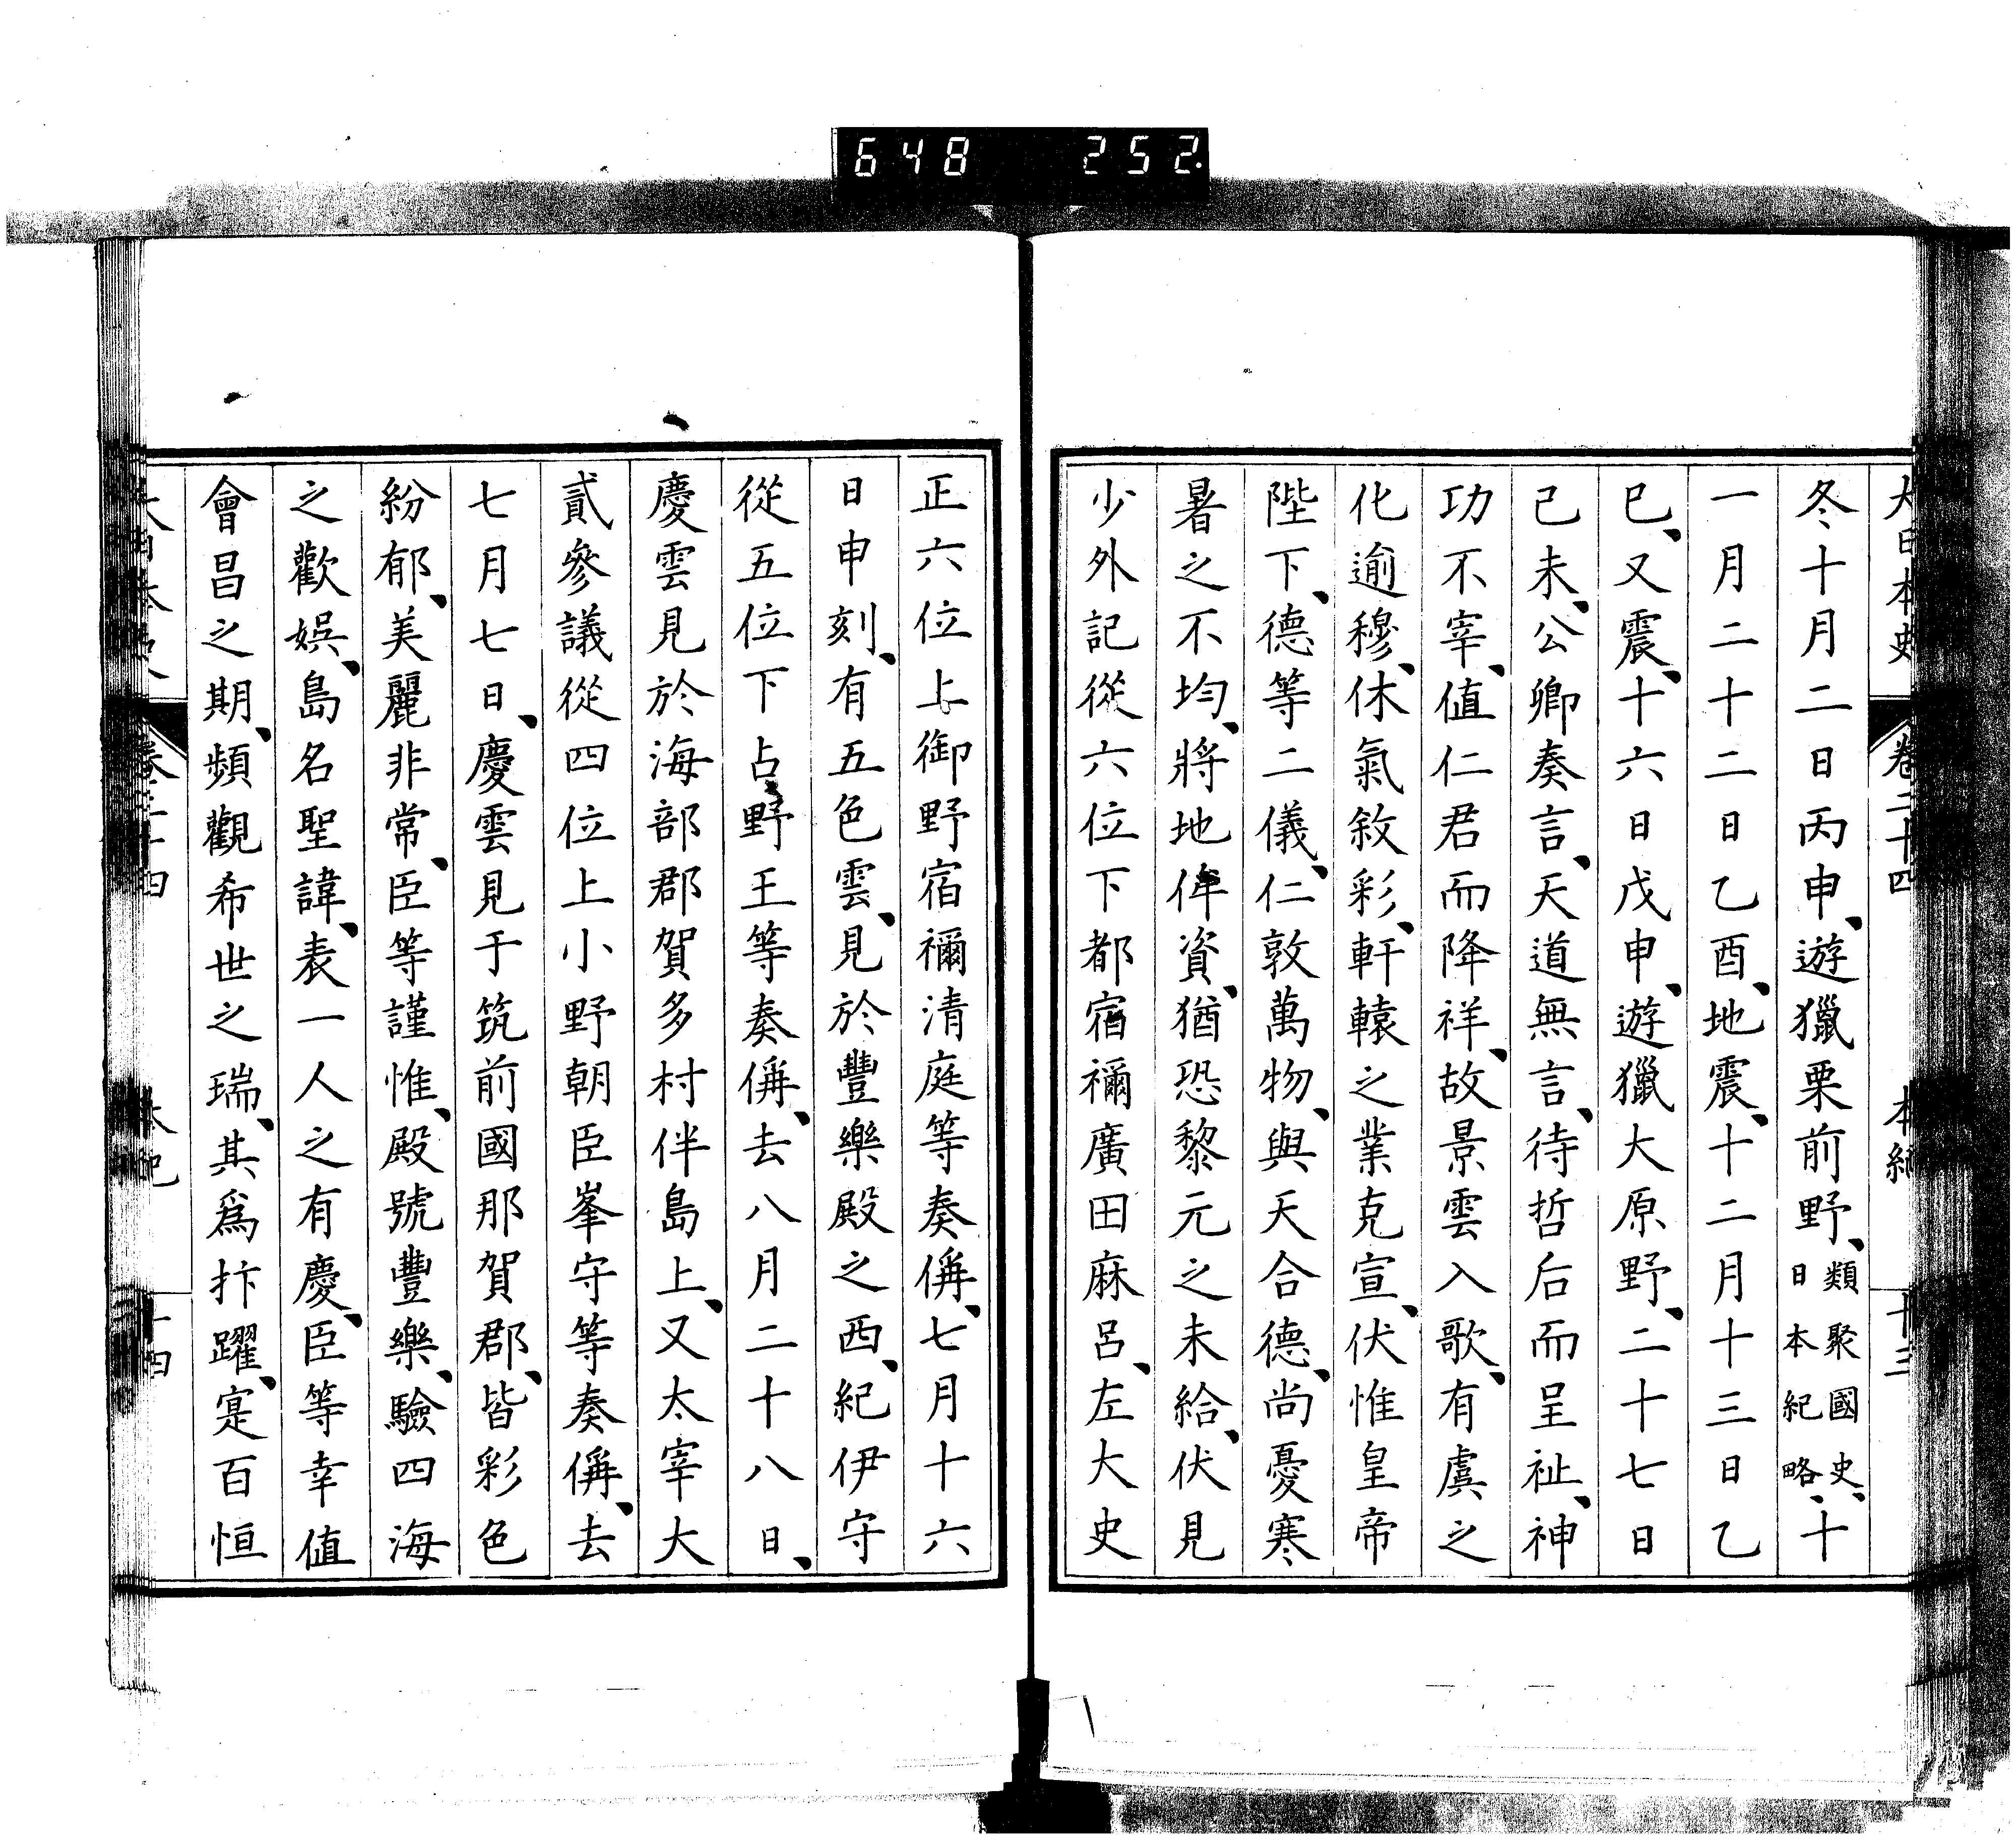 648 252
大日本史 卷二十四 本紀 十三
冬十月二日丙申、遊獵栗前野、類聚國史、日本紀略、十
一月二十二日乙酉、地震、十二月十三日乙
巳、又震、十六日戊申、遊獵大原野、二十七日
己未、公卿奏言、天道無言、待哲后而呈祉、神
功不宰、値仁君而降祥、故景雲入歌、有虞之
化逾穆、休氣敘彩、軒轅之業克宣、伏惟皇帝
陛下、德等二儀、仁敦萬物、與天合德、尚憂寒
暑之不均、將地侔資、猶恐黎元之未給、伏見
少外記從六位下都宿禰廣田麻呂、左大史
正六位上御野宿禰清庭等奏偁、七月十六
日申刻、有五色雲、見於豐樂殿之西、紀伊守
從五位下占野王等奏偁、去八月二十八日、
慶雲見於海部郡賀多村伴島上、又太宰大
貳參議從四位上小野朝臣峯守等奏偁、去
七月七日、慶雲見于筑前國那賀郡、皆彩色
紛郁、美麗非常、臣等謹惟、殿號豐樂、驗四海
之歡娯、島名聖諱、表一人之有慶、臣等幸値
會昌之期、頻觀希世之瑞、其爲抃躍、寔百恒
大日本史 卷二十四 本紀 十四